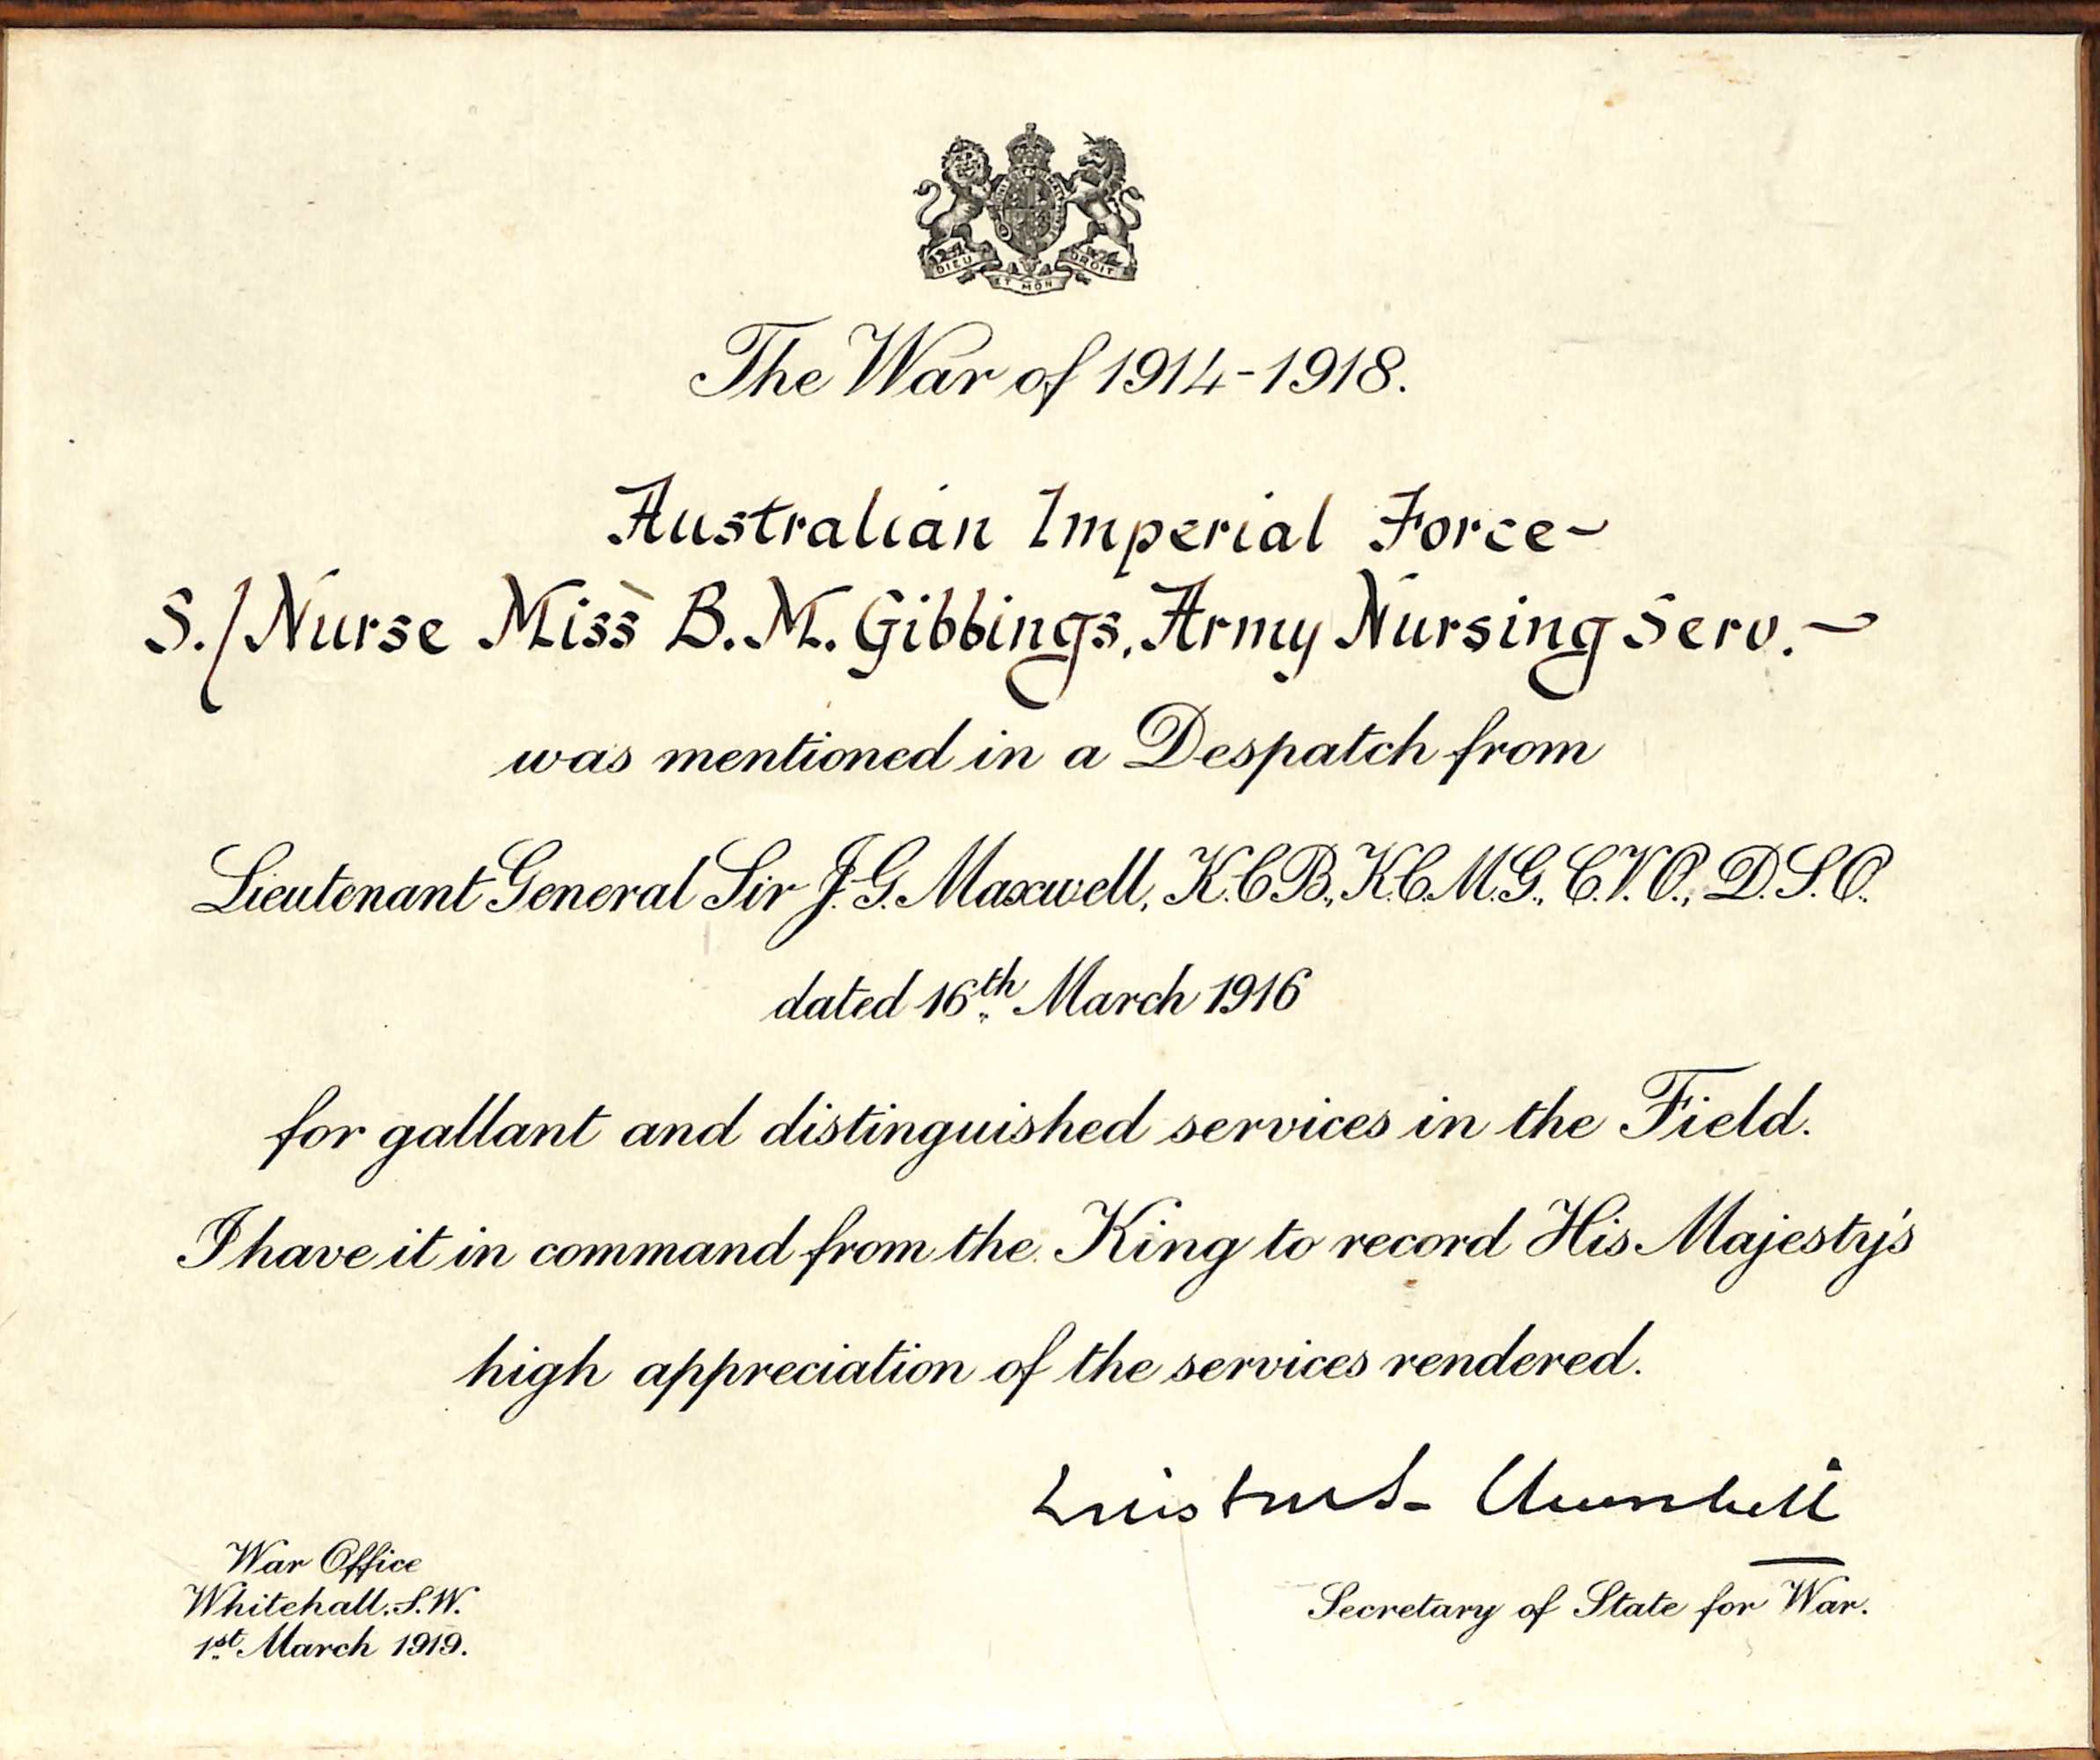 DIEU ET MON DROIT
The War of 1914-1918.
Australian Imperial Force-
S./Nurse Miss B. M. Gibbings, Army Nursing Serv. -
was mentioned in a Despatch from
Lieutenant General Sir J. G. Maxwell, K.C.B., K.C.M.G., C.V.O., D.S.O.
dated 16th March 1916
for gallant and distinguished services in the Field.
I have it in command from the King to record His Majesty's
high appreciation of the services rendered.
Winston S. Churchill
War Office
Whitehall. S.W.
1st March 1919.
Secretary of State for War.